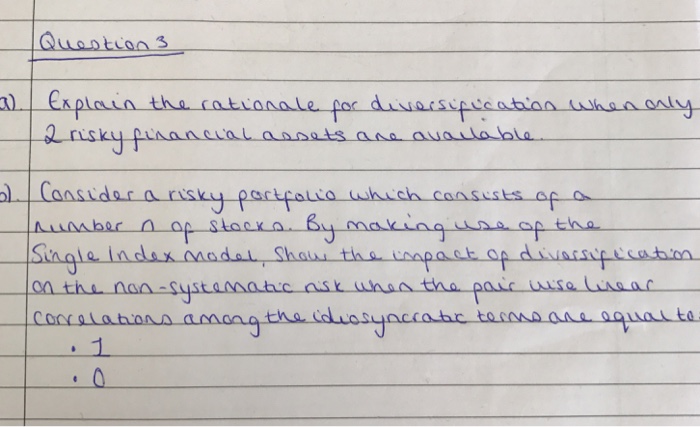 Question 3
a). Explain the rationale for diversification when only
2 risky financial assets are available.
b). Consider a risky portfolio which consists of a
number n of stocks. By making use of the
Single Index model, show the impact of diversification
on the non-systematic risk when the pair wise linear
correlations among the idiosyncratic terms are equal to:
• 1
• 0